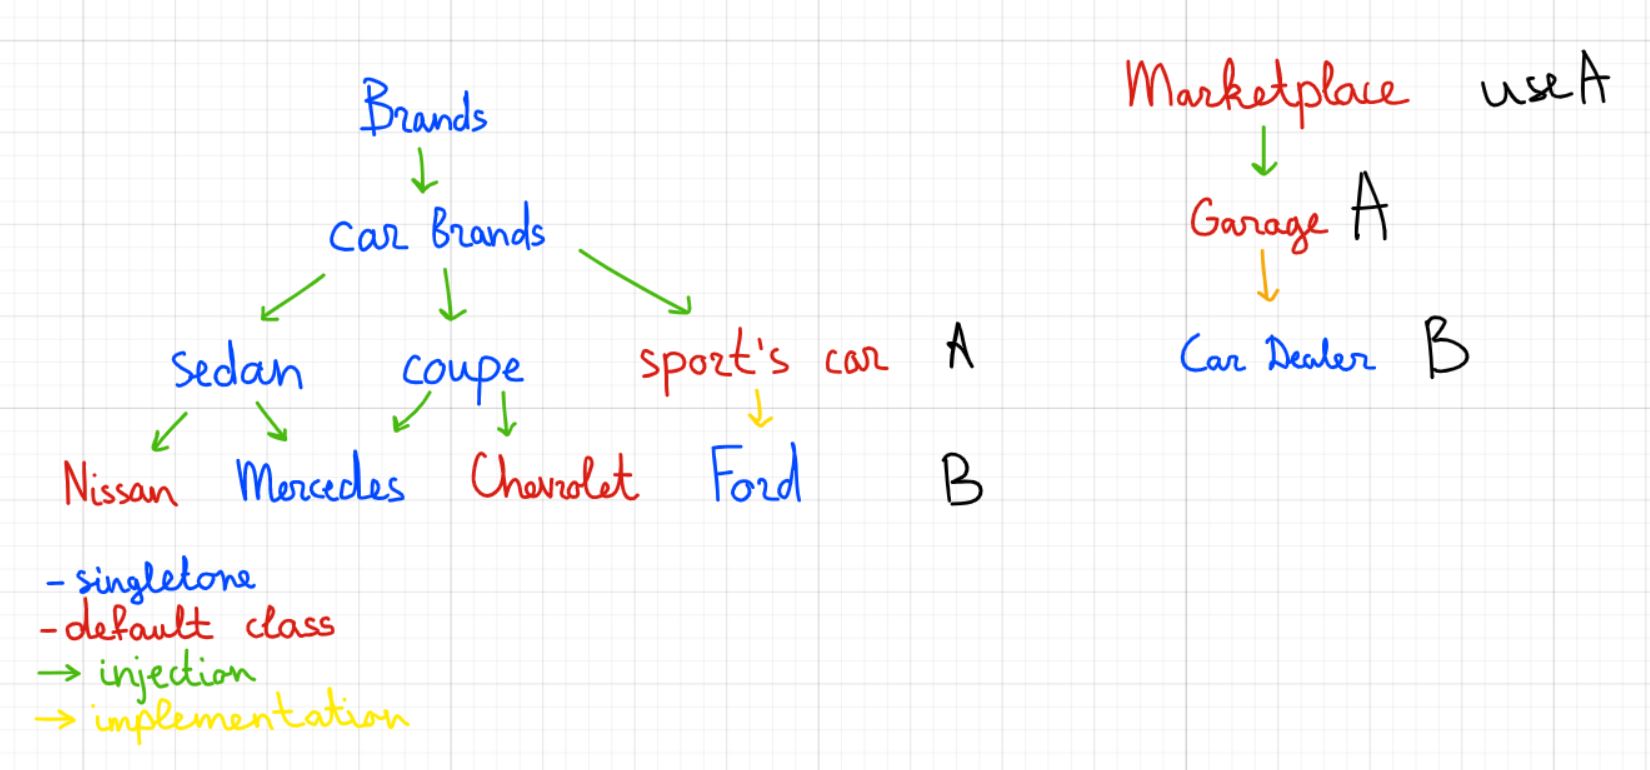 Brands
Car Brands
Sedan coupe sport's car A
Nissan Mercedes Chevrolet Ford B
- singletone
- default class
→ injection
→ implementation
Marketplace use A
Garage A
Car Dealer B